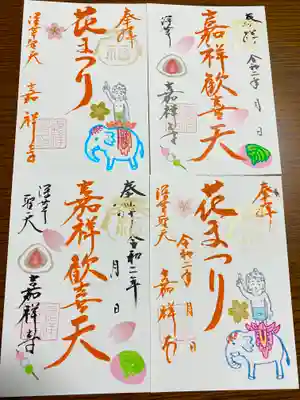 奉拝
花まつり
深草聖天
嘉祥寺
奉拝
令和二年 月 日
嘉祥歓喜天
深草
嘉祥寺
奉拝
令和二年
月 日
嘉祥歓喜天
深草
聖天
嘉祥寺
奉拝
花まつり
令和二年 月 日
深草聖天
嘉祥寺